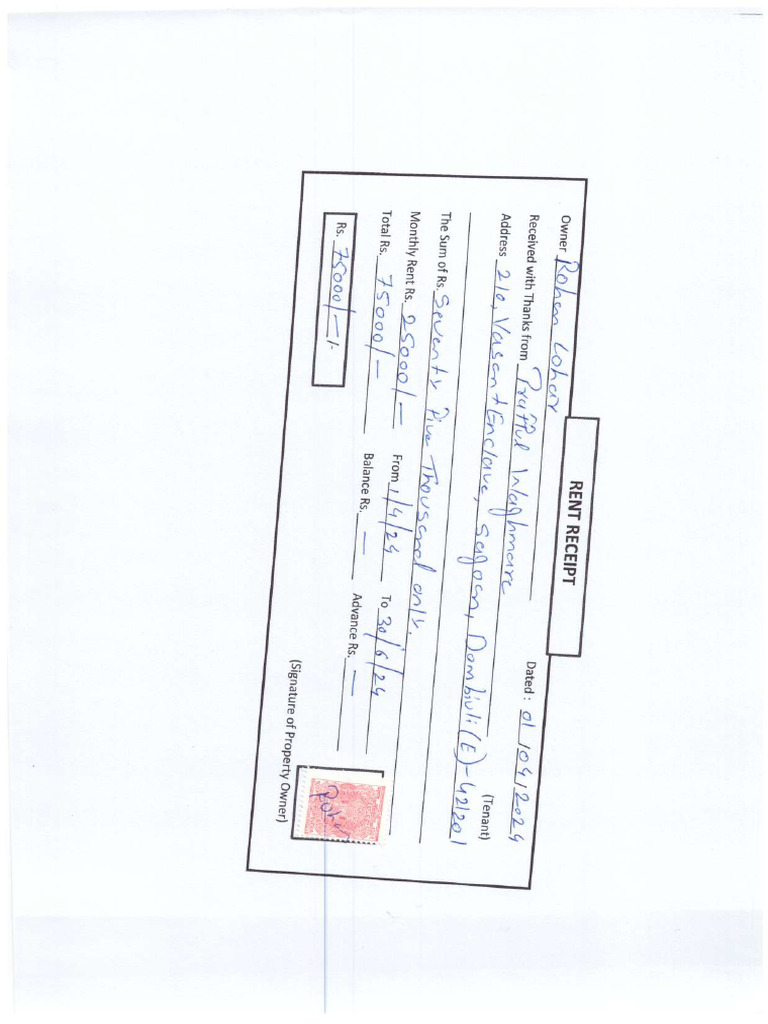 RENT RECEIPT
Owner Rohan Lohar Dated : 01/04/2024
Received with Thanks from Prafful Waghmare (Tenant)
Address 210, Vasant Enclave, Sagaon, Dombivli (E) - 421201
The Sum of Rs. Seventy Five Thousand only.
Monthly Rent Rs. 25000/- From 1/4/24 To 30/6/24
Total Rs. 75000/- Balance Rs. — Advance Rs. —
Rs. 75000/- /-
(Signature of Property Owner)